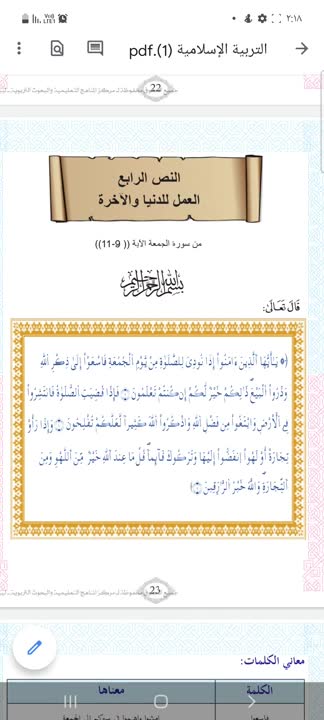 ٢:١٨
التربية الإسلامية (1).pdf
22
النص الرابع
العمل للدنيا والآخرة
من سورة الجمعة الآية (( 9-11))
بسم الله الرحمن الرحيم
قَالَ تَعَالَىٰ:
﴿ يَٰٓأَيُّهَا ٱلَّذِينَ ءَامَنُوٓا۟ إِذَا نُودِىَ لِلصَّلَوٰةِ مِن يَوْمِ ٱلْجُمُعَةِ فَٱسْعَوْا۟ إِلَىٰ ذِكْرِ ٱللَّهِ
وَذَرُوا۟ ٱلْبَيْعَ ۚ ذَٰلِكُمْ خَيْرٌ لَّكُمْ إِن كُنتُمْ تَعْلَمُونَ ۝ فَإِذَا قُضِيَتِ ٱلصَّلَوٰةُ فَٱنتَشِرُوا۟
فِى ٱلْأَرْضِ وَٱبْتَغُوا۟ مِن فَضْلِ ٱللَّهِ وَٱذْكُرُوا۟ ٱللَّهَ كَثِيرًا لَّعَلَّكُمْ تُفْلِحُونَ ۝ وَإِذَا رَأَوْا۟
تِجَٰرَةً أَوْ لَهْوًا ٱنفَضُّوٓا۟ إِلَيْهَا وَتَرَكُوكَ قَآئِمًا ۚ قُلْ مَا عِندَ ٱللَّهِ خَيْرٌ مِّنَ ٱللَّهْوِ وَمِنَ
ٱلتِّجَٰرَةِ ۚ وَٱللَّهُ خَيْرُ ٱلرَّٰزِقِينَ ۝ ﴾
23
معاني الكلمات:
الكلمة معناها